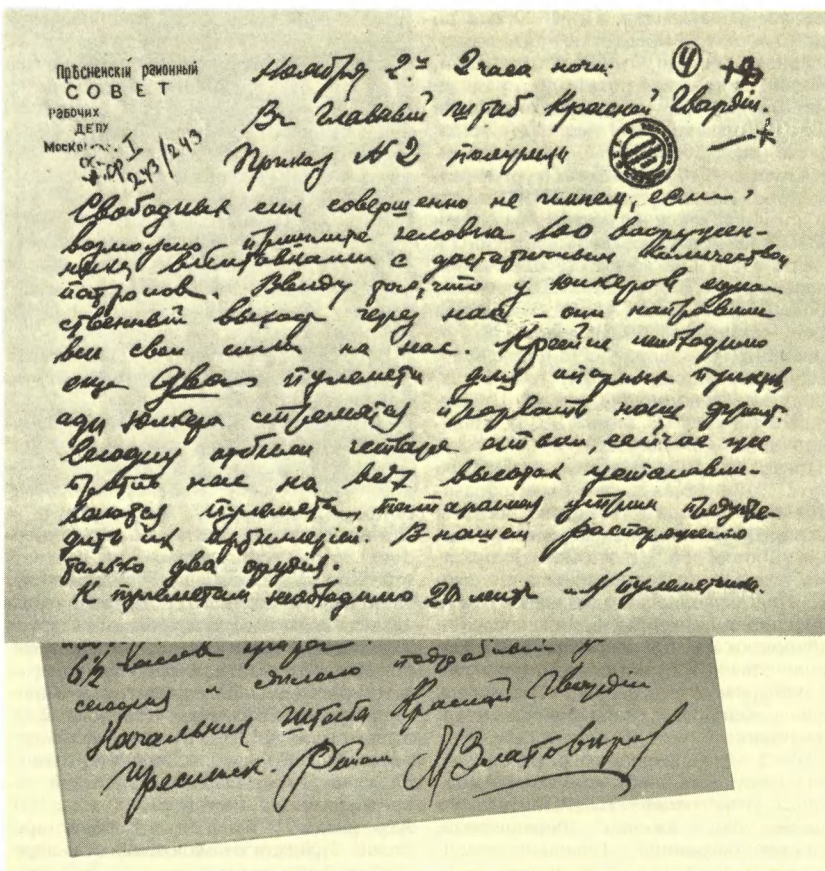 Прѣсненскій районный
СОВЕТ
Рабочих
ДЕПУ
Моск
I
243/243
Ноября 2го 2 часа ночи.
4
В Главный штаб Красной Гвардіи.
Приказ №2 получили
Свободных сил совершенно не имеем, если
возможно пришлите человек 100 вооружен-
ных винтовками с достаточным количеством
патронов. Ввиду того, что у юнкеров един
ственный выход через нас – они направили
все свои силы на нас. Крайне необходимо
еще два пулемета для опорных пунктов,
юнкера стремятся прорвать наш фронт.
Сегодня отбили четыре атаки, сейчас же
против нас на всѣх высотах устанавли-
ваются пулеметы, постараемся утром предупре-
дить их артиллеріей. В нашем распоряжении
только два орудія.
К пулеметам необходимо 20 лент и 4 пулеметчика.
6½ часов
сегодня и
Начальник Штаба Красной Гвардіи
Пресненск. Района М Златоверов